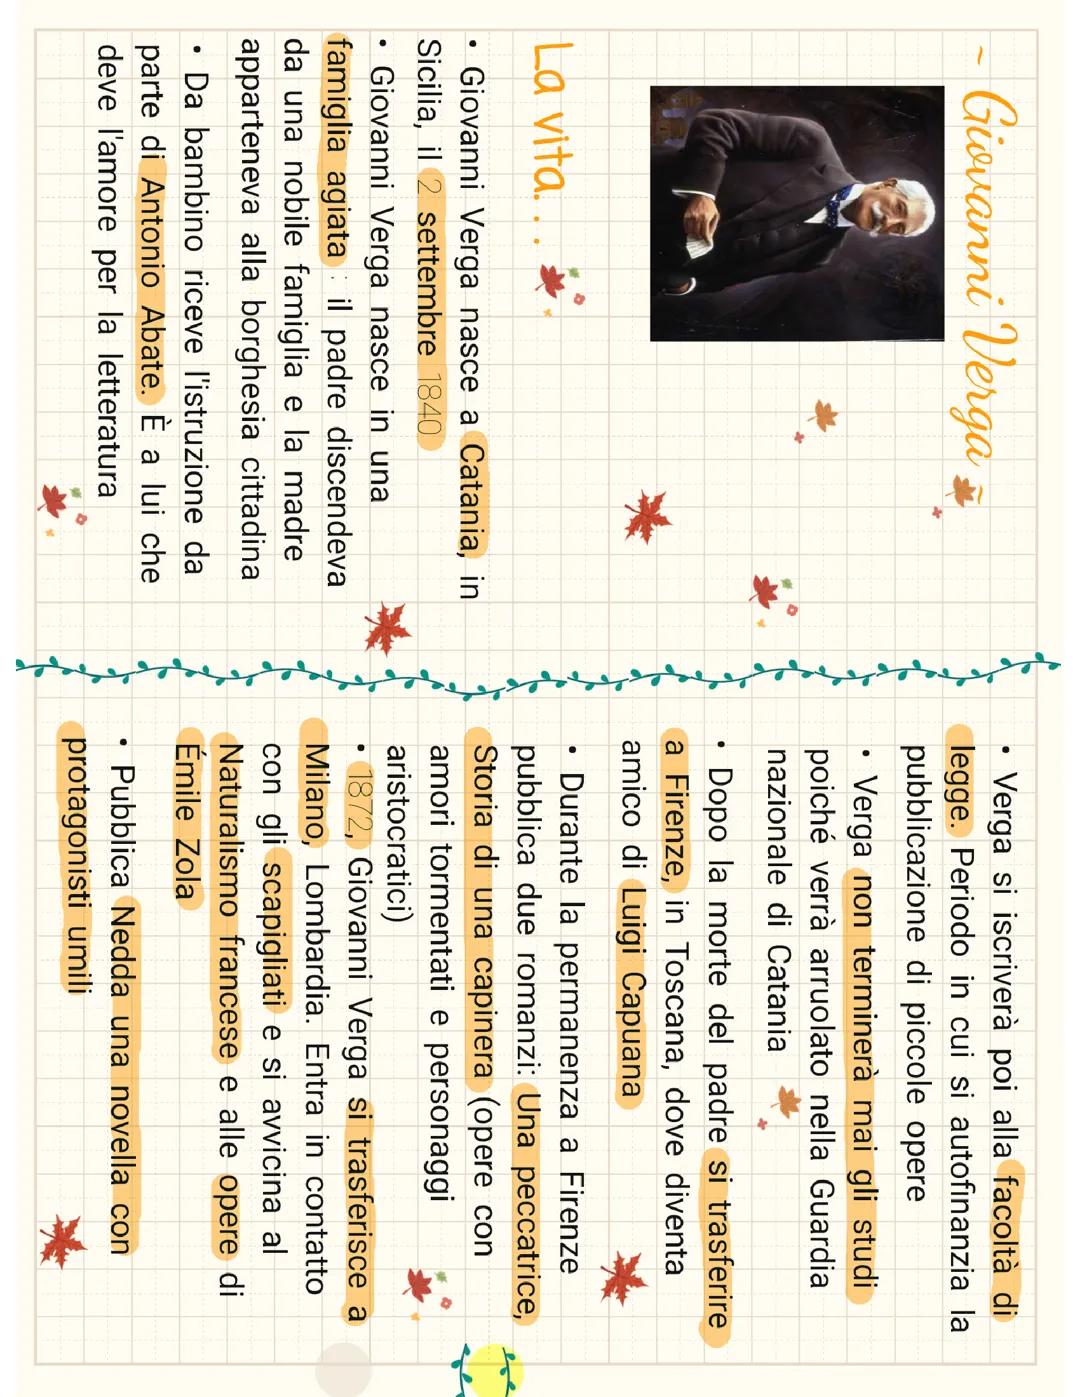 ~ Giovanni Verga ~
La vita...
• Giovanni Verga nasce a Catania, in
Sicilia, il 2 settembre 1840
• Giovanni Verga nasce in una
famiglia agiata : il padre discendeva
da una nobile famiglia e la madre
apparteneva alla borghesia cittadina
• Da bambino riceve l'istruzione da
parte di Antonio Abate. È a lui che
deve l'amore per la letteratura
• Verga si iscriverà poi alla facoltà di
legge. Periodo in cui si autofinanzia la
pubblicazione di piccole opere
• Verga non terminerà mai gli studi
poiché verrà arruolato nella Guardia
nazionale di Catania
• Dopo la morte del padre si trasferire
a Firenze, in Toscana, dove diventa
amico di Luigi Capuana
• Durante la permanenza a Firenze
pubblica due romanzi: Una peccatrice,
Storia di una capinera (opere con
amori tormentati e personaggi
aristocratici)
• 1872, Giovanni Verga si trasferisce a
Milano, Lombardia. Entra in contatto
con gli scapigliati e si avvicina al
Naturalismo francese e alle opere di
Émile Zola
• Pubblica Nedda una novella con
protagonisti umili